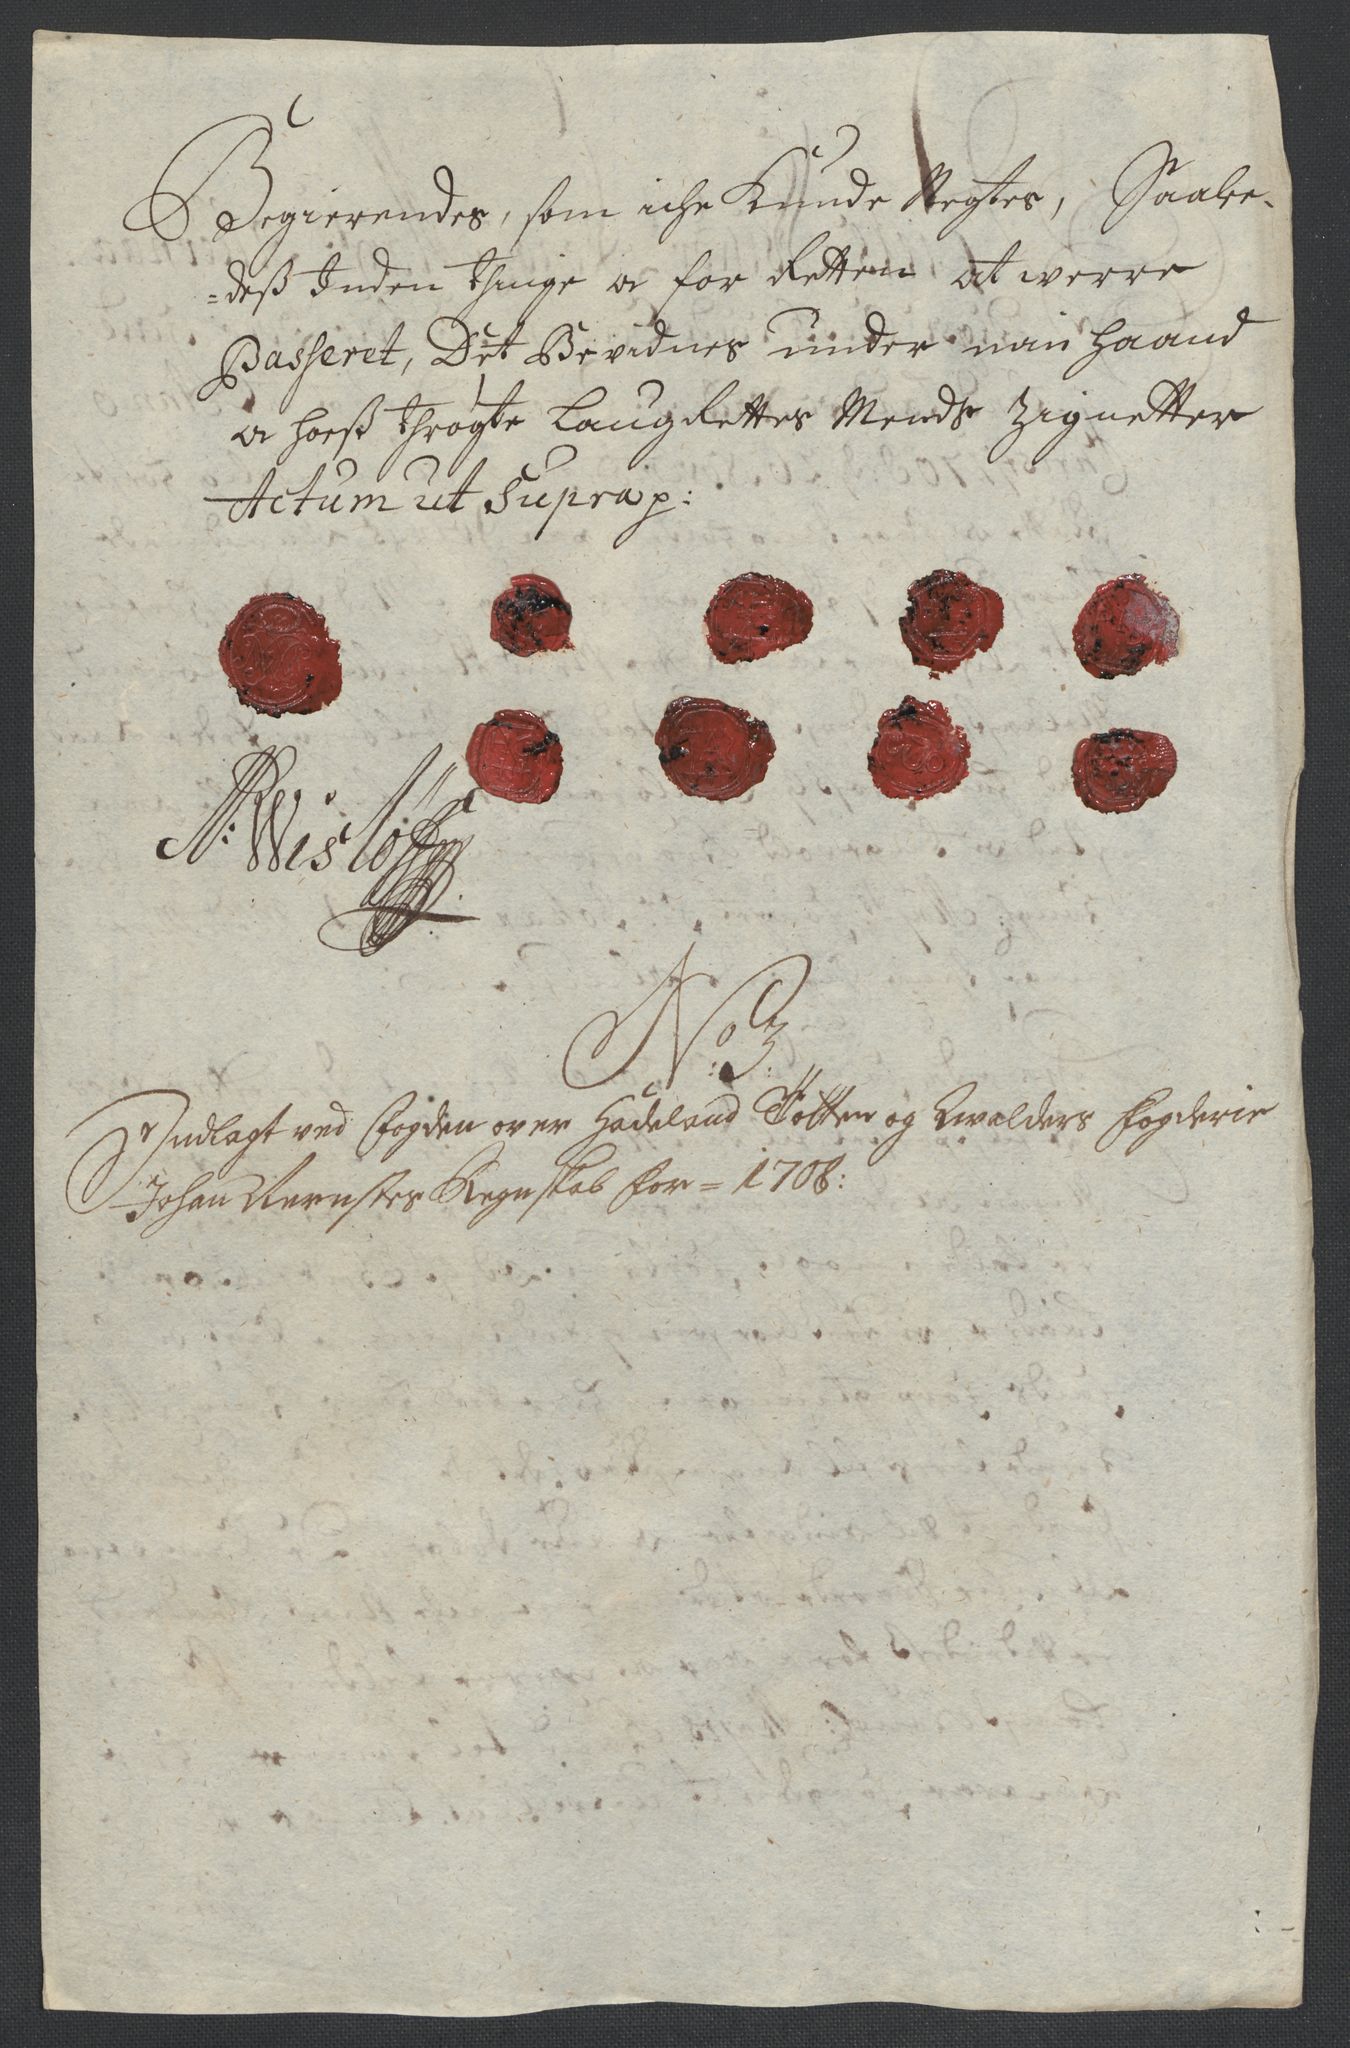 Begierendes, som iche Kunde Negtes, Saale-
=deß Inden thinge oc for Retten at werre
Passeret, Det Bevidnes under min Haand
oc hoeß thrögte LaugRettes Mends Zignetter
Actum ut Supra p:
N: Wislöff
No: 3.
Indlagt ved Fogden over Hadeland Totten og Walders Fogderie
Johan Rernstes Regnskab for = 1708: